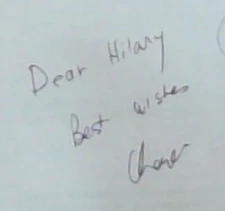 Dear Hilary
Best wishes